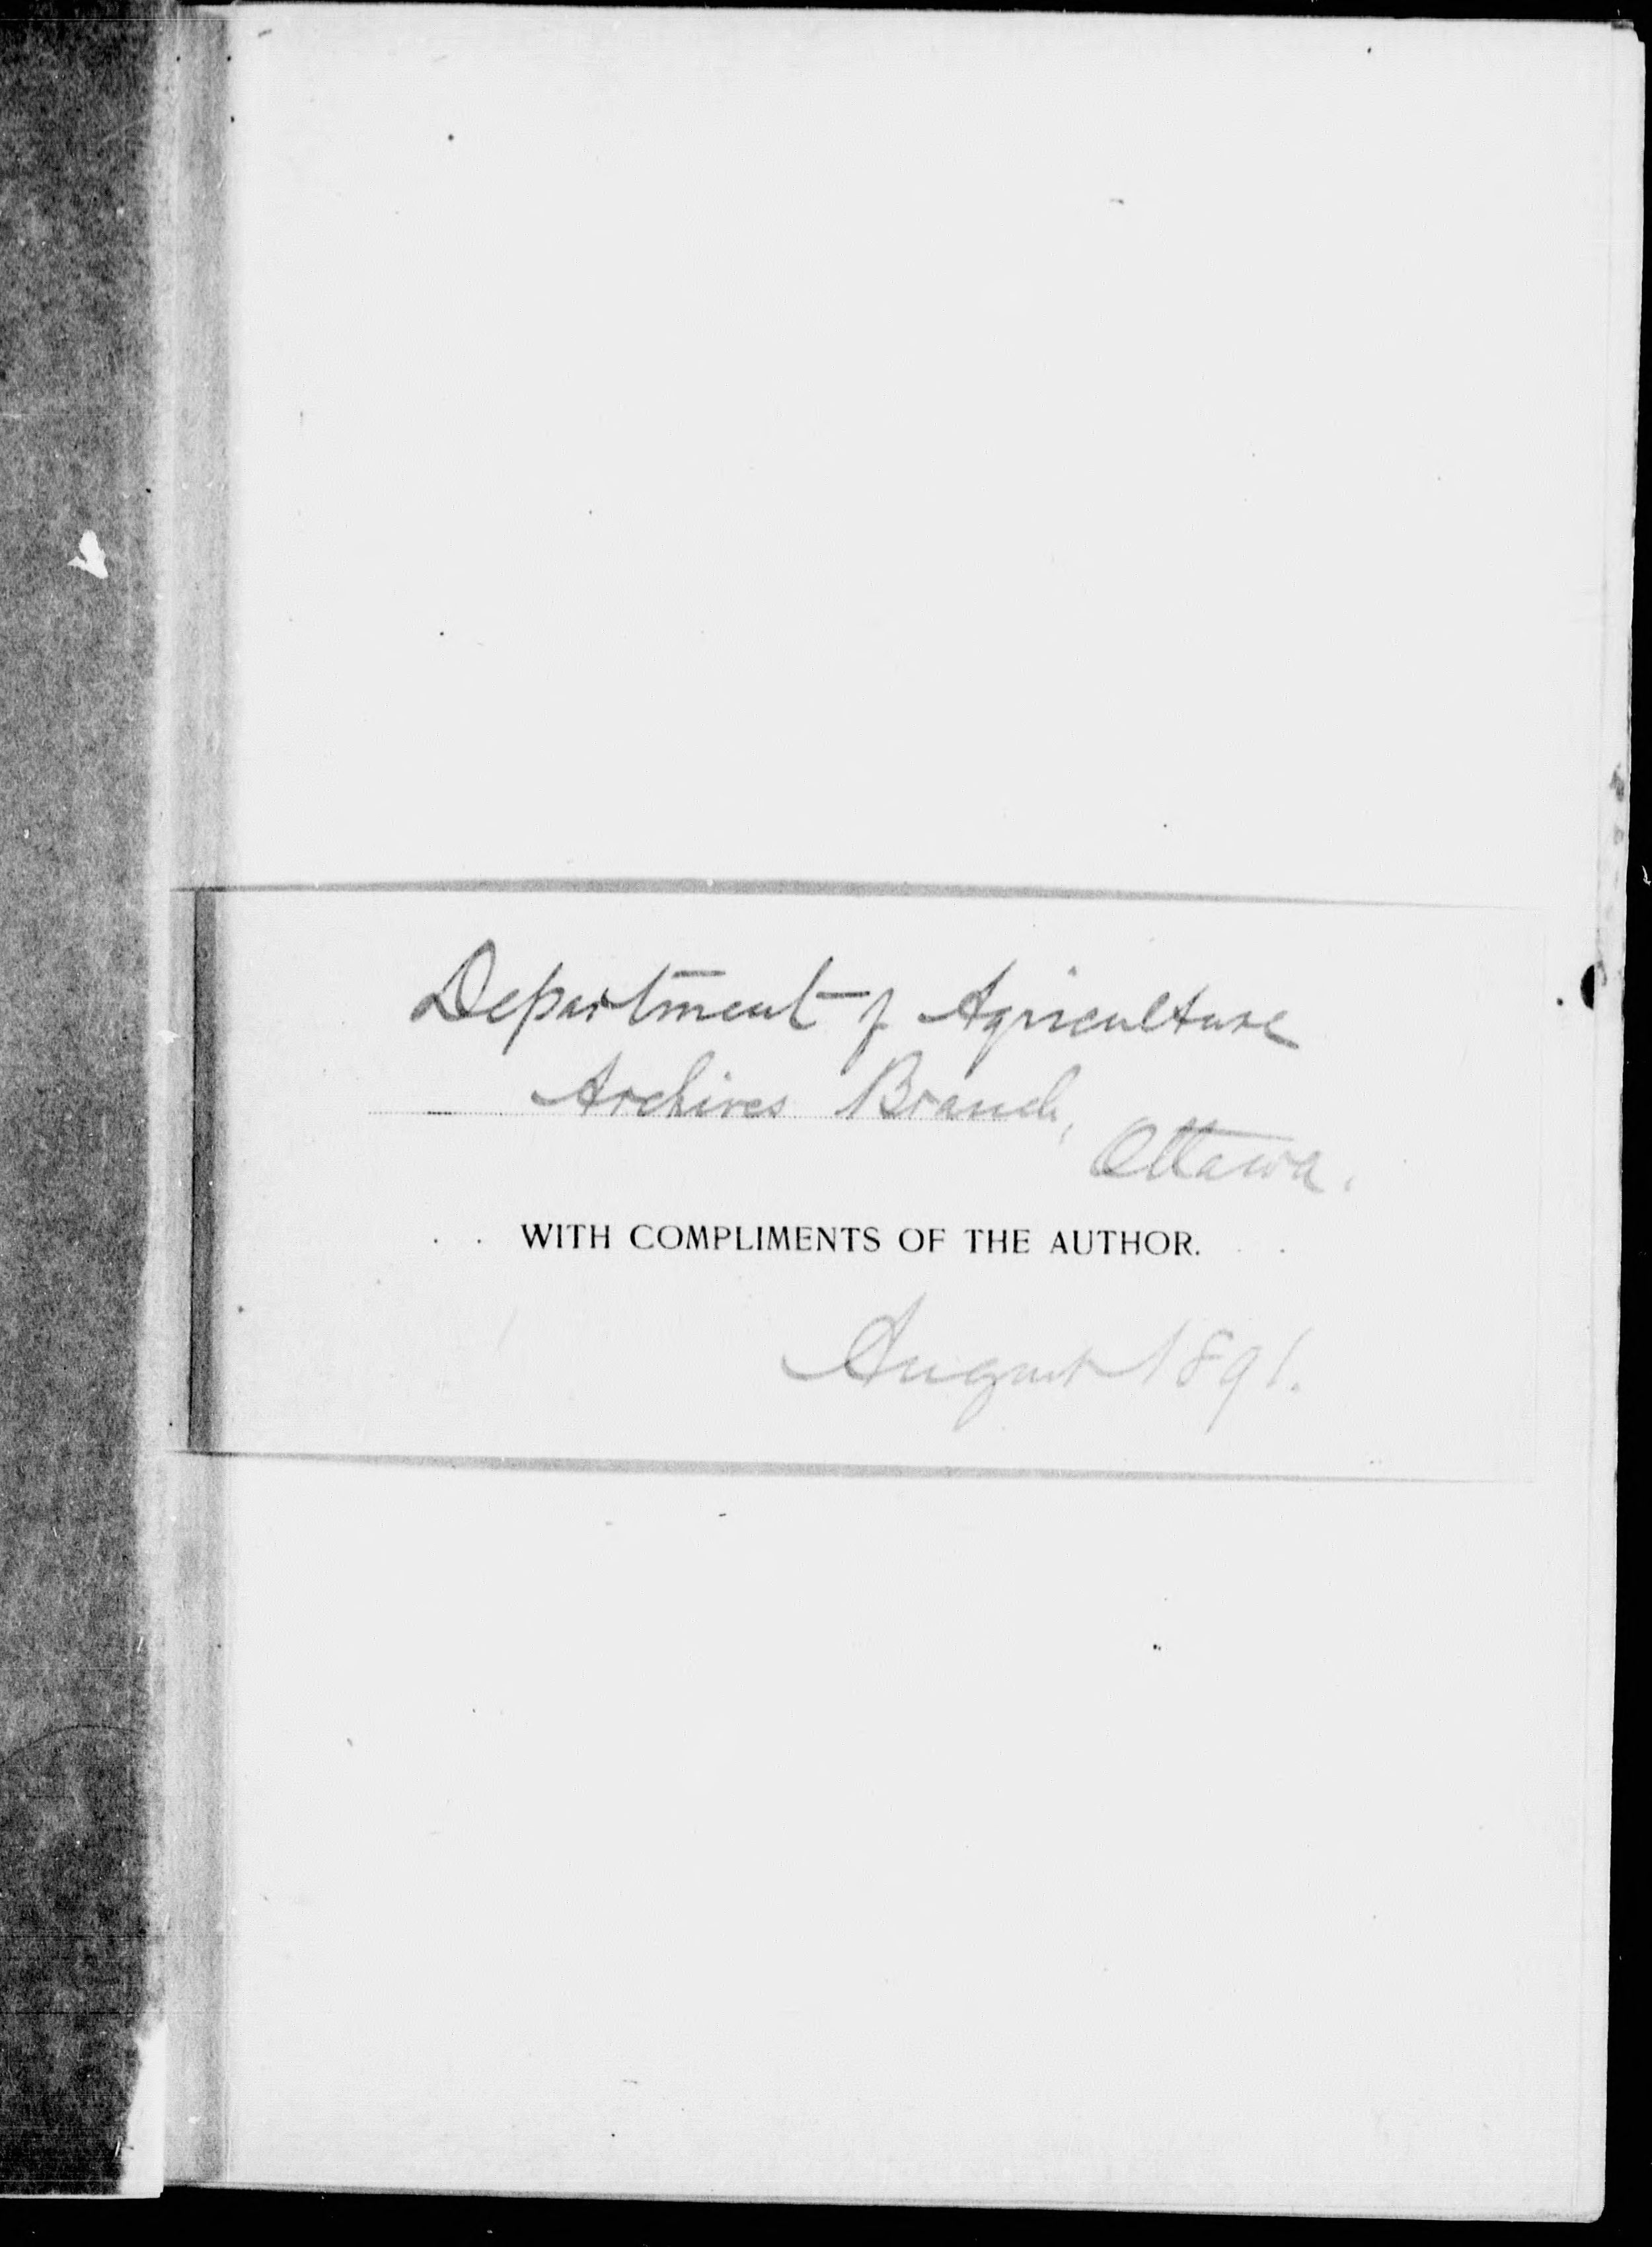 Department of Agriculture
Archives Branch,
Ottawa.
WITH COMPLIMENTS OF THE AUTHOR.
August 1891.